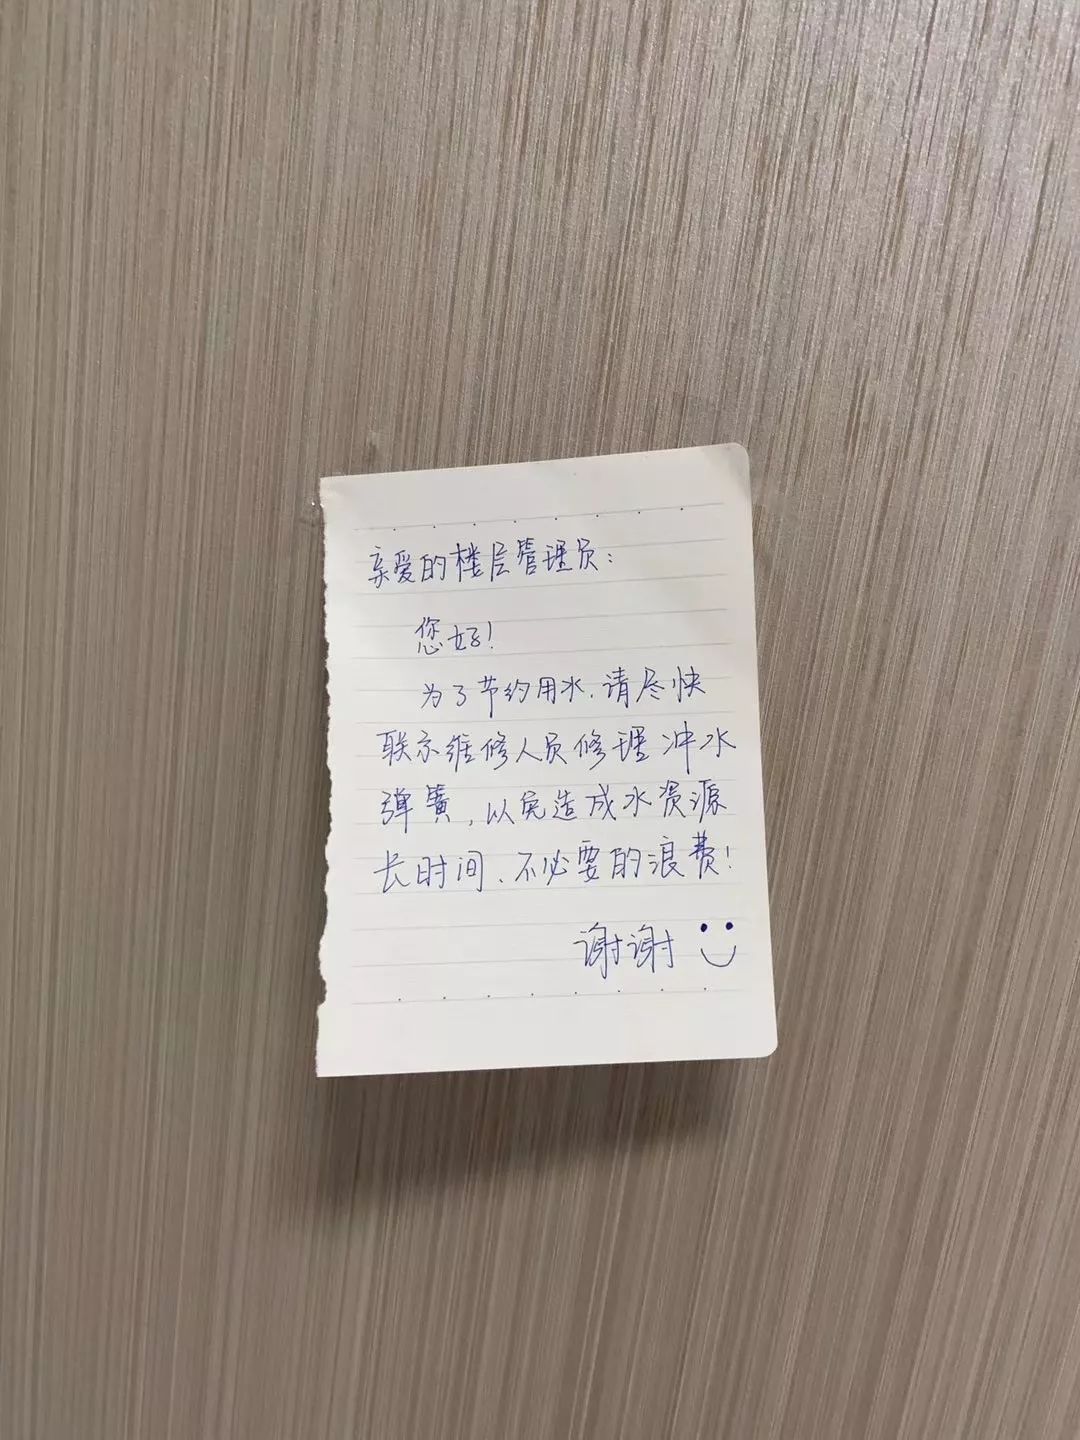 亲爱的楼层管理员：
您好！
为了节约用水，请尽快
联系维修人员修理冲水
弹簧，以免造成水资源
长时间、不必要的浪费！
谢谢